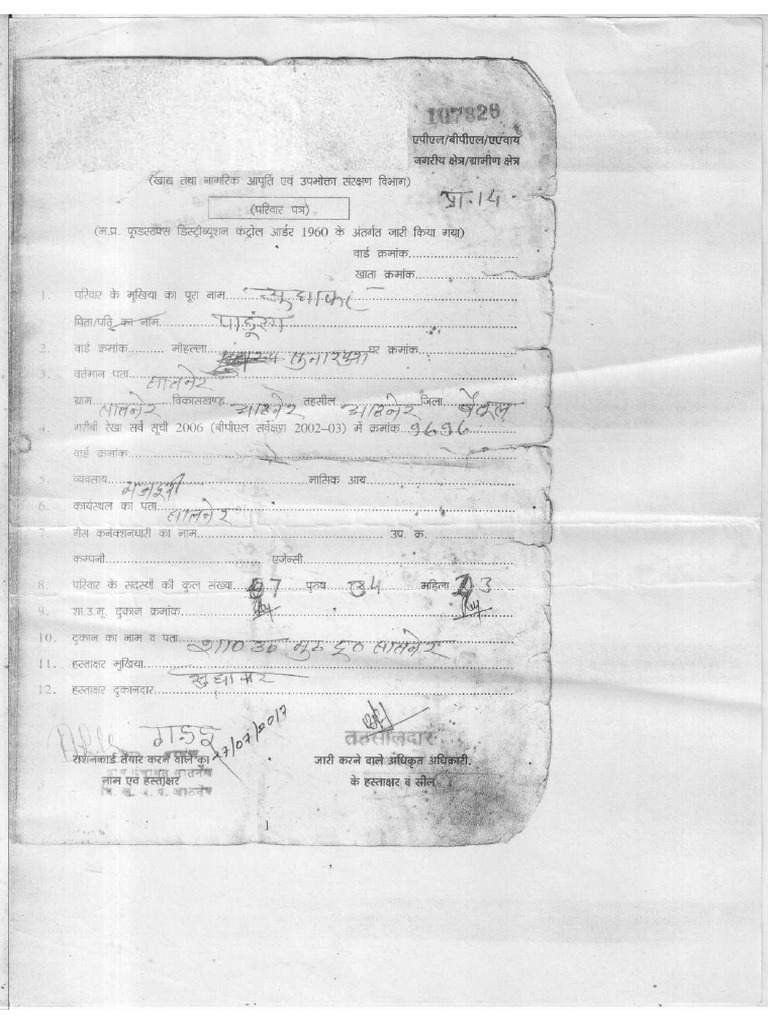 107826
एपीएल/बीपीएल/एएवाय
नगरीय क्षेत्र/ग्रामीण क्षेत्र
(खाद्य तथा नागरिक आपूर्ति एवं उपभोक्ता संरक्षण विभाग)
प्रा.14
(परिवार पत्र)
(म.प्र. फूडस्टफ्स डिस्ट्रीब्यूशन कंट्रोल आर्डर 1960 के अंतर्गत जारी किया गया)
वार्ड क्रमांक
खाता क्रमांक
1. परिवार के मुखिया का पूरा नाम सुधाकर
पिता/पति का नाम पाडूंरंग
2. वार्ड क्रमांक मोहल्ला घर क्रमांक
3. वर्तमान पता सातनेर
ग्राम सातनेर विकासखण्ड आठनेर तहसील आठनेर जिला बैतूल
4. गरीबी रेखा सर्वे सूची 2006 (बीपीएल सर्वेक्षण 2002-03) में क्रमांक
वार्ड क्रमांक
5. व्यवसाय मजदूरी मासिक आय
6. कार्यस्थल का पता सातनेर
7. गैस कनेक्शनधारी का नाम उप. क्रं.
कम्पनी एजेन्सी
8. परिवार के सदस्यों की कुल संख्या 7 पुरुष 4 महिला 3
9. शा.उ.मू. दुकान क्रमांक
10. दुकान का नाम व पता शा0 उ0 मु0 दु0 सातनेर
11. हस्ताक्षर मुखिया सुधाकर
12. हस्ताक्षर दुकानदार
27/07/2017
तहसीलदार
राशनकार्ड तैयार करने वाले का
जारी करने वाले अधिकृत अधिकारी
नाम एवं हस्ताक्षर
के हस्ताक्षर व सील
1